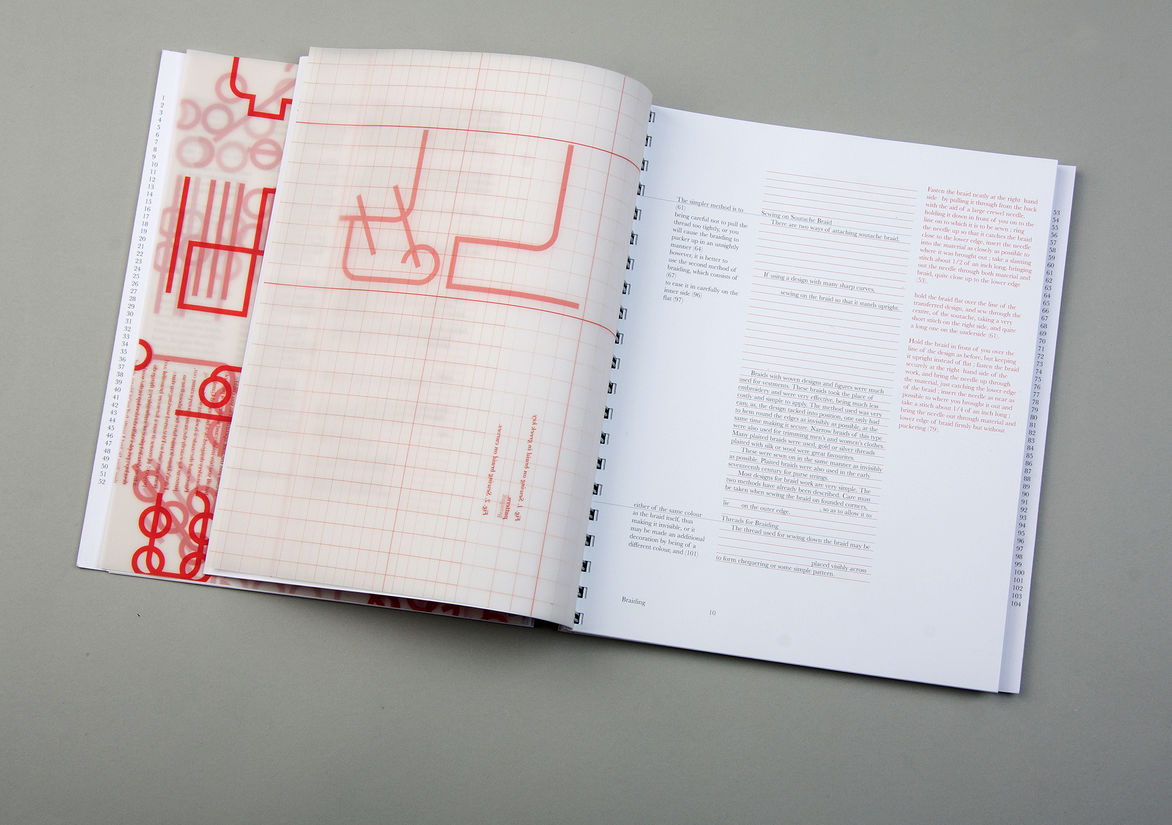 1
2
3
4
5
6
7
8
9
10
11
12
13
14
15
16
17
18
19
20
21
22
23
24
25
26
27
28
29
30
31
32
33
34
35
36
37
38
39
40
41
42
43
44
45
46
47
48
49
50
51
52
The simpler method is to
(61)
being careful not to pull the
thread too tightly, or you
will cause the braiding to
pucker up in an unsightly
manner (64)
however, it is better to
use the second method of
braiding, which consists of
(67)
to ease it in carefully on the
inner side (96)
flat (97)
either of the same colour
as the braid itself, thus
making it invisible, or it
may be made an additional
decoration by being of a
different colour, and (101)
Sewing on Soutache Braid
There are two ways of attaching soutache braid.
If using a design with many sharp curves,
sewing on the braid so that it stands upright.
Braids with woven designs and figures were much
used for vestments. These braids took the place of
embroidery and were very effective, being much less
costly and simple to apply. The method used was very
easy, as, the design tacked into position, one only had
to hem round the edges as invisibly as possible, at the
same time making it secure. Narrow braids of this type
were also used for trimming men's and women's clothes.
Many plaited braids were used, gold or silver threads
plaited with silk or wool were great favourites.
These were sewn on in the same manner as invisibly
as possible. Plaited braids were also used in the early
seventeenth century for purse strings.
Most designs for braid work are very simple. The
two methods have already been described. Care must
be taken when sewing the braid on founded corners,
lie on the outer edge, , so as to allow it to
Threads for Braiding
The thread used for sewing down the braid may be
placed visibly across
to form chequering or some simple pattern.
Fasten the braid neatly at the right hand
side by pulling it through from the back
with the aid of a large crewel needle,
holding it down in front of you on to the
line on which it is to be sewn ; bring
the needle up so that it catches the braid
close to the lower edge, insert the needle
into the material as closely as possible to
where it was brought out ; take a slanting
stitch about 1/2 of an inch long, bringing
out the needle through both material and
braid, quite close up to the lower edge
(53).
hold the braid flat over the line of the
transferred design, and sew through the
centre, of the soutache, taking a very
short stitch on the right side, and quite
a long one on the underside (61).
Hold the braid in front of you over the
line of the design as before, but keeping
it upright instead of flat ; fasten the braid
securely at the right hand side of the
work, and bring the needle up through
the material, just catching the lower edge
of the braid ; insert the needle as near as
possible to where you brought it out and
take a stitch about 1/4 of an inch long ;
bring the needle out through material and
lower edge of braid firmly but without
puckering (79).
Braiding
10
53
54
55
56
57
58
59
60
61
62
63
64
65
66
67
68
69
70
71
72
73
74
75
76
77
78
79
80
81
82
83
84
85
86
87
88
89
90
91
92
93
94
95
96
97
98
99
100
101
102
103
104